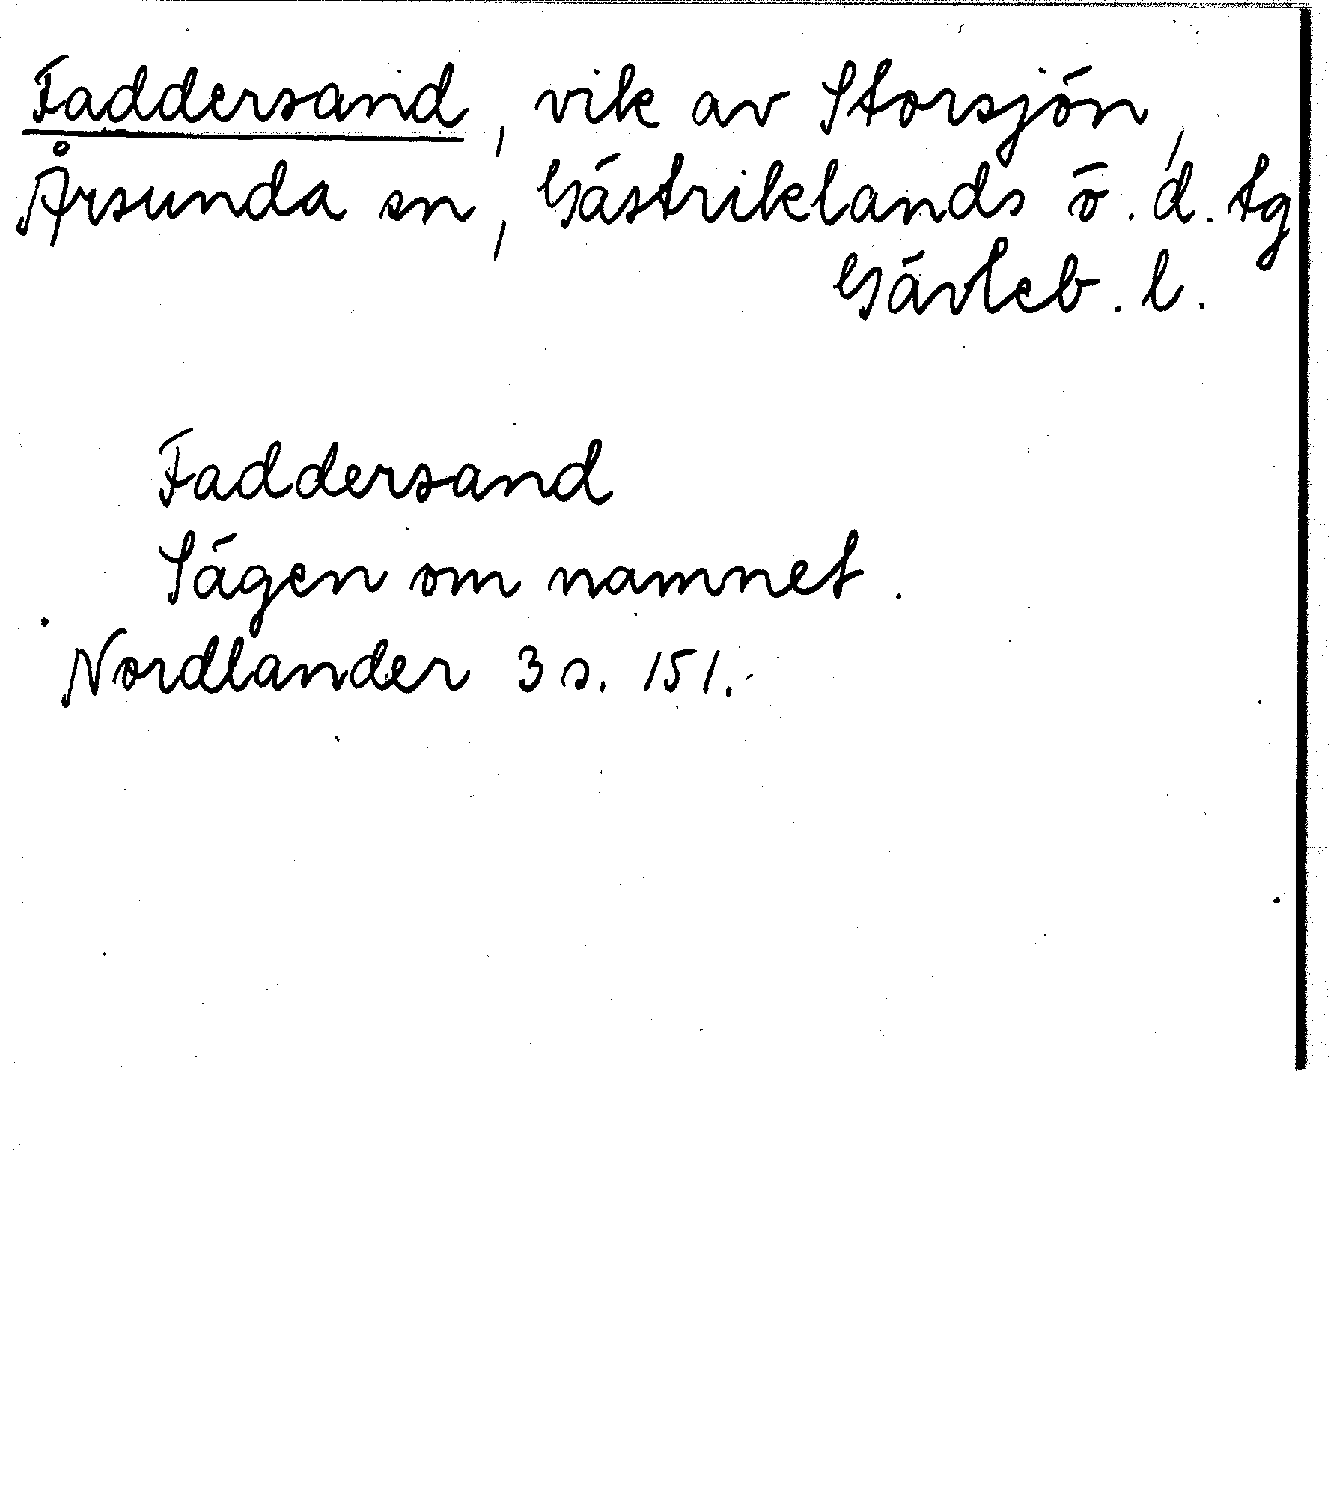 Faddersand, vik av Storsjön,
Årsunda sn, Gästriklands ö. d. tg
Gävleb. l.
Faddersand
Sägen om namnet.
Nordlander 3 s. 151.